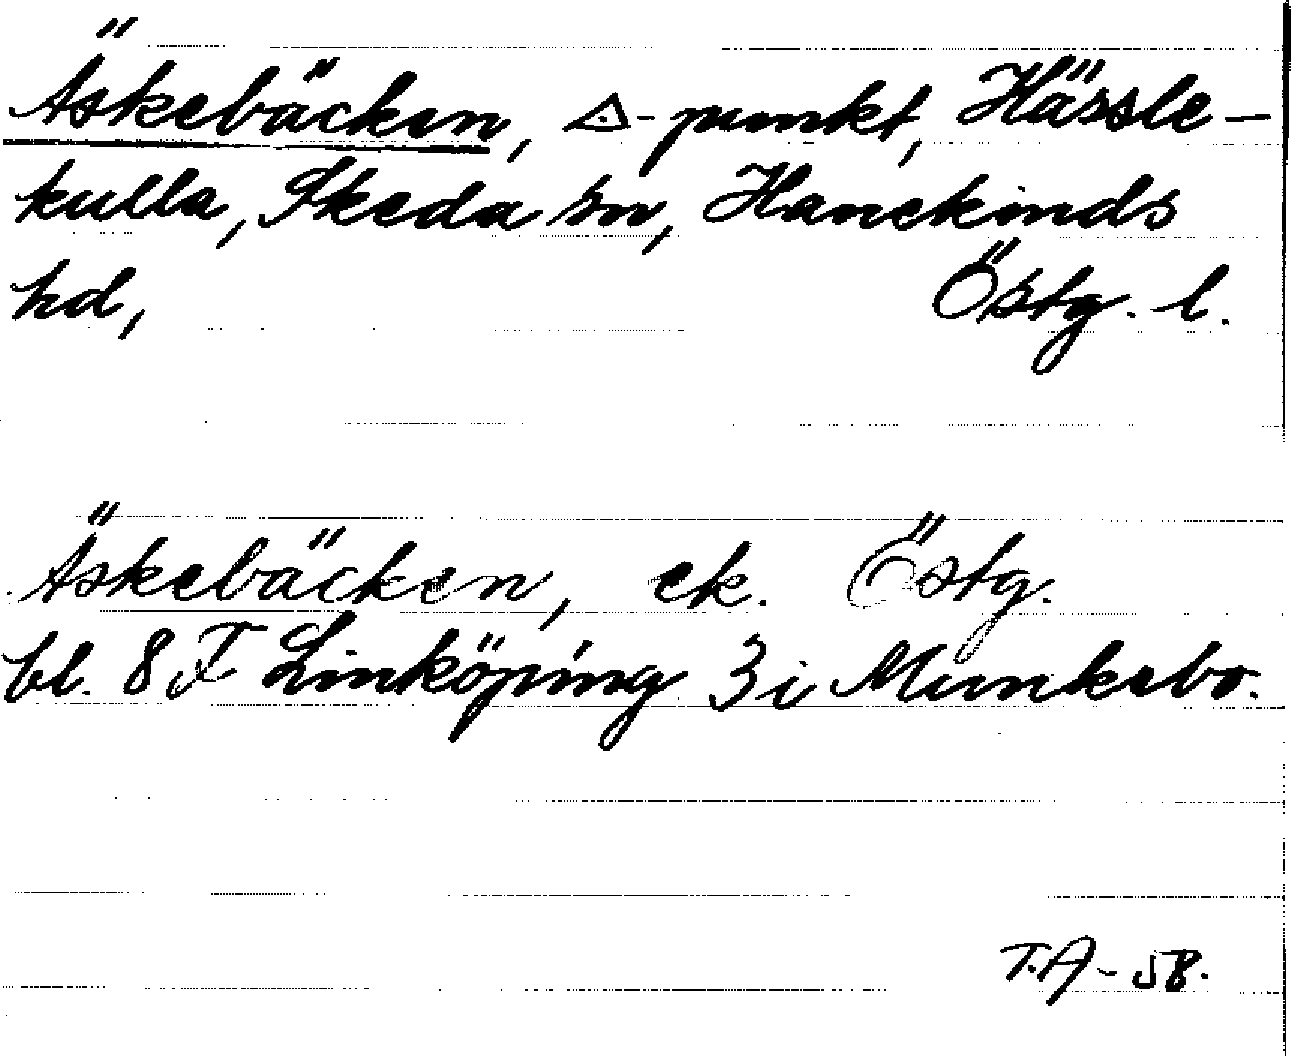 Äskebäcken, △-punkt, Hässle-
kulla, Skeda sn, Hanekinds
hd, Östg. l.
Äskebäcken, ek. Östg.
bl. 8 F Linköping 3 i Munkebo.
T.A - 58.